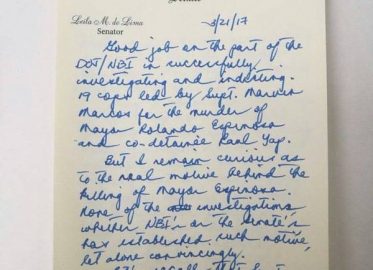 Senate
Leila M. de Lima
Senator
3/21/17
Good job on the part of the
DOJ/NBI in successfully
investigating and indicting
19 cops led by Supt. Marvin
Marcos for the murder of
Mayor Rolando Espinosa
and co-detainee Raul Yap.
But I remain curious as
to the real motive behind the
killing of Mayor Espinosa.
None of the investigations
whether NBI's or the Senate's
has established such motive,
let alone convincingly.